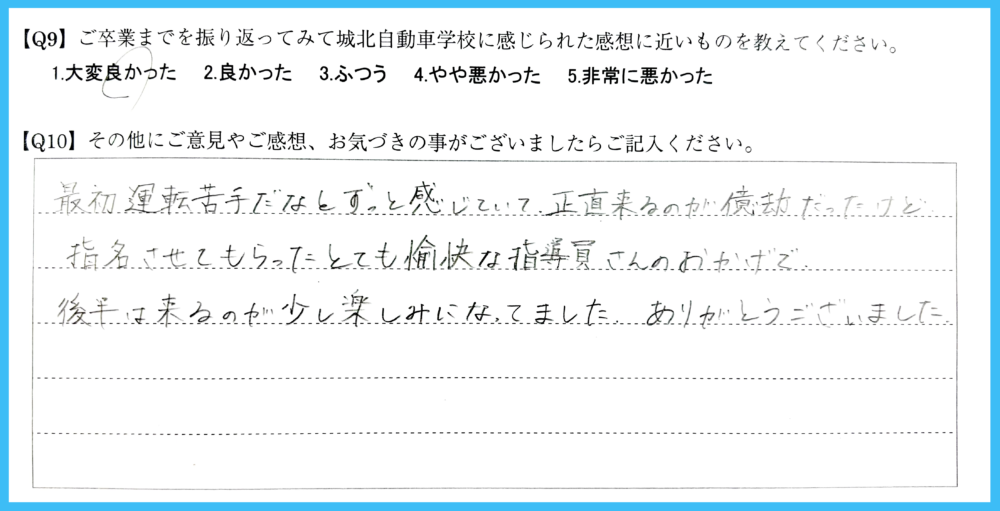 【Q9】ご卒業までを振り返ってみて城北自動車学校に感じられた感想に近いものを教えてください。
1.大変良かった　2.良かった　3.ふつう　4.やや悪かった　5.非常に悪かった
【Q10】その他にご意見やご感想、お気づきの事がございましたらご記入ください。
最初運転苦手だなとずっと感じていて、正直来るのが億劫だったけど、
指名させてもらったとても愉快な指導員さんのおかげで、
後半は来るのが少し楽しみになってました。ありがとうございました。